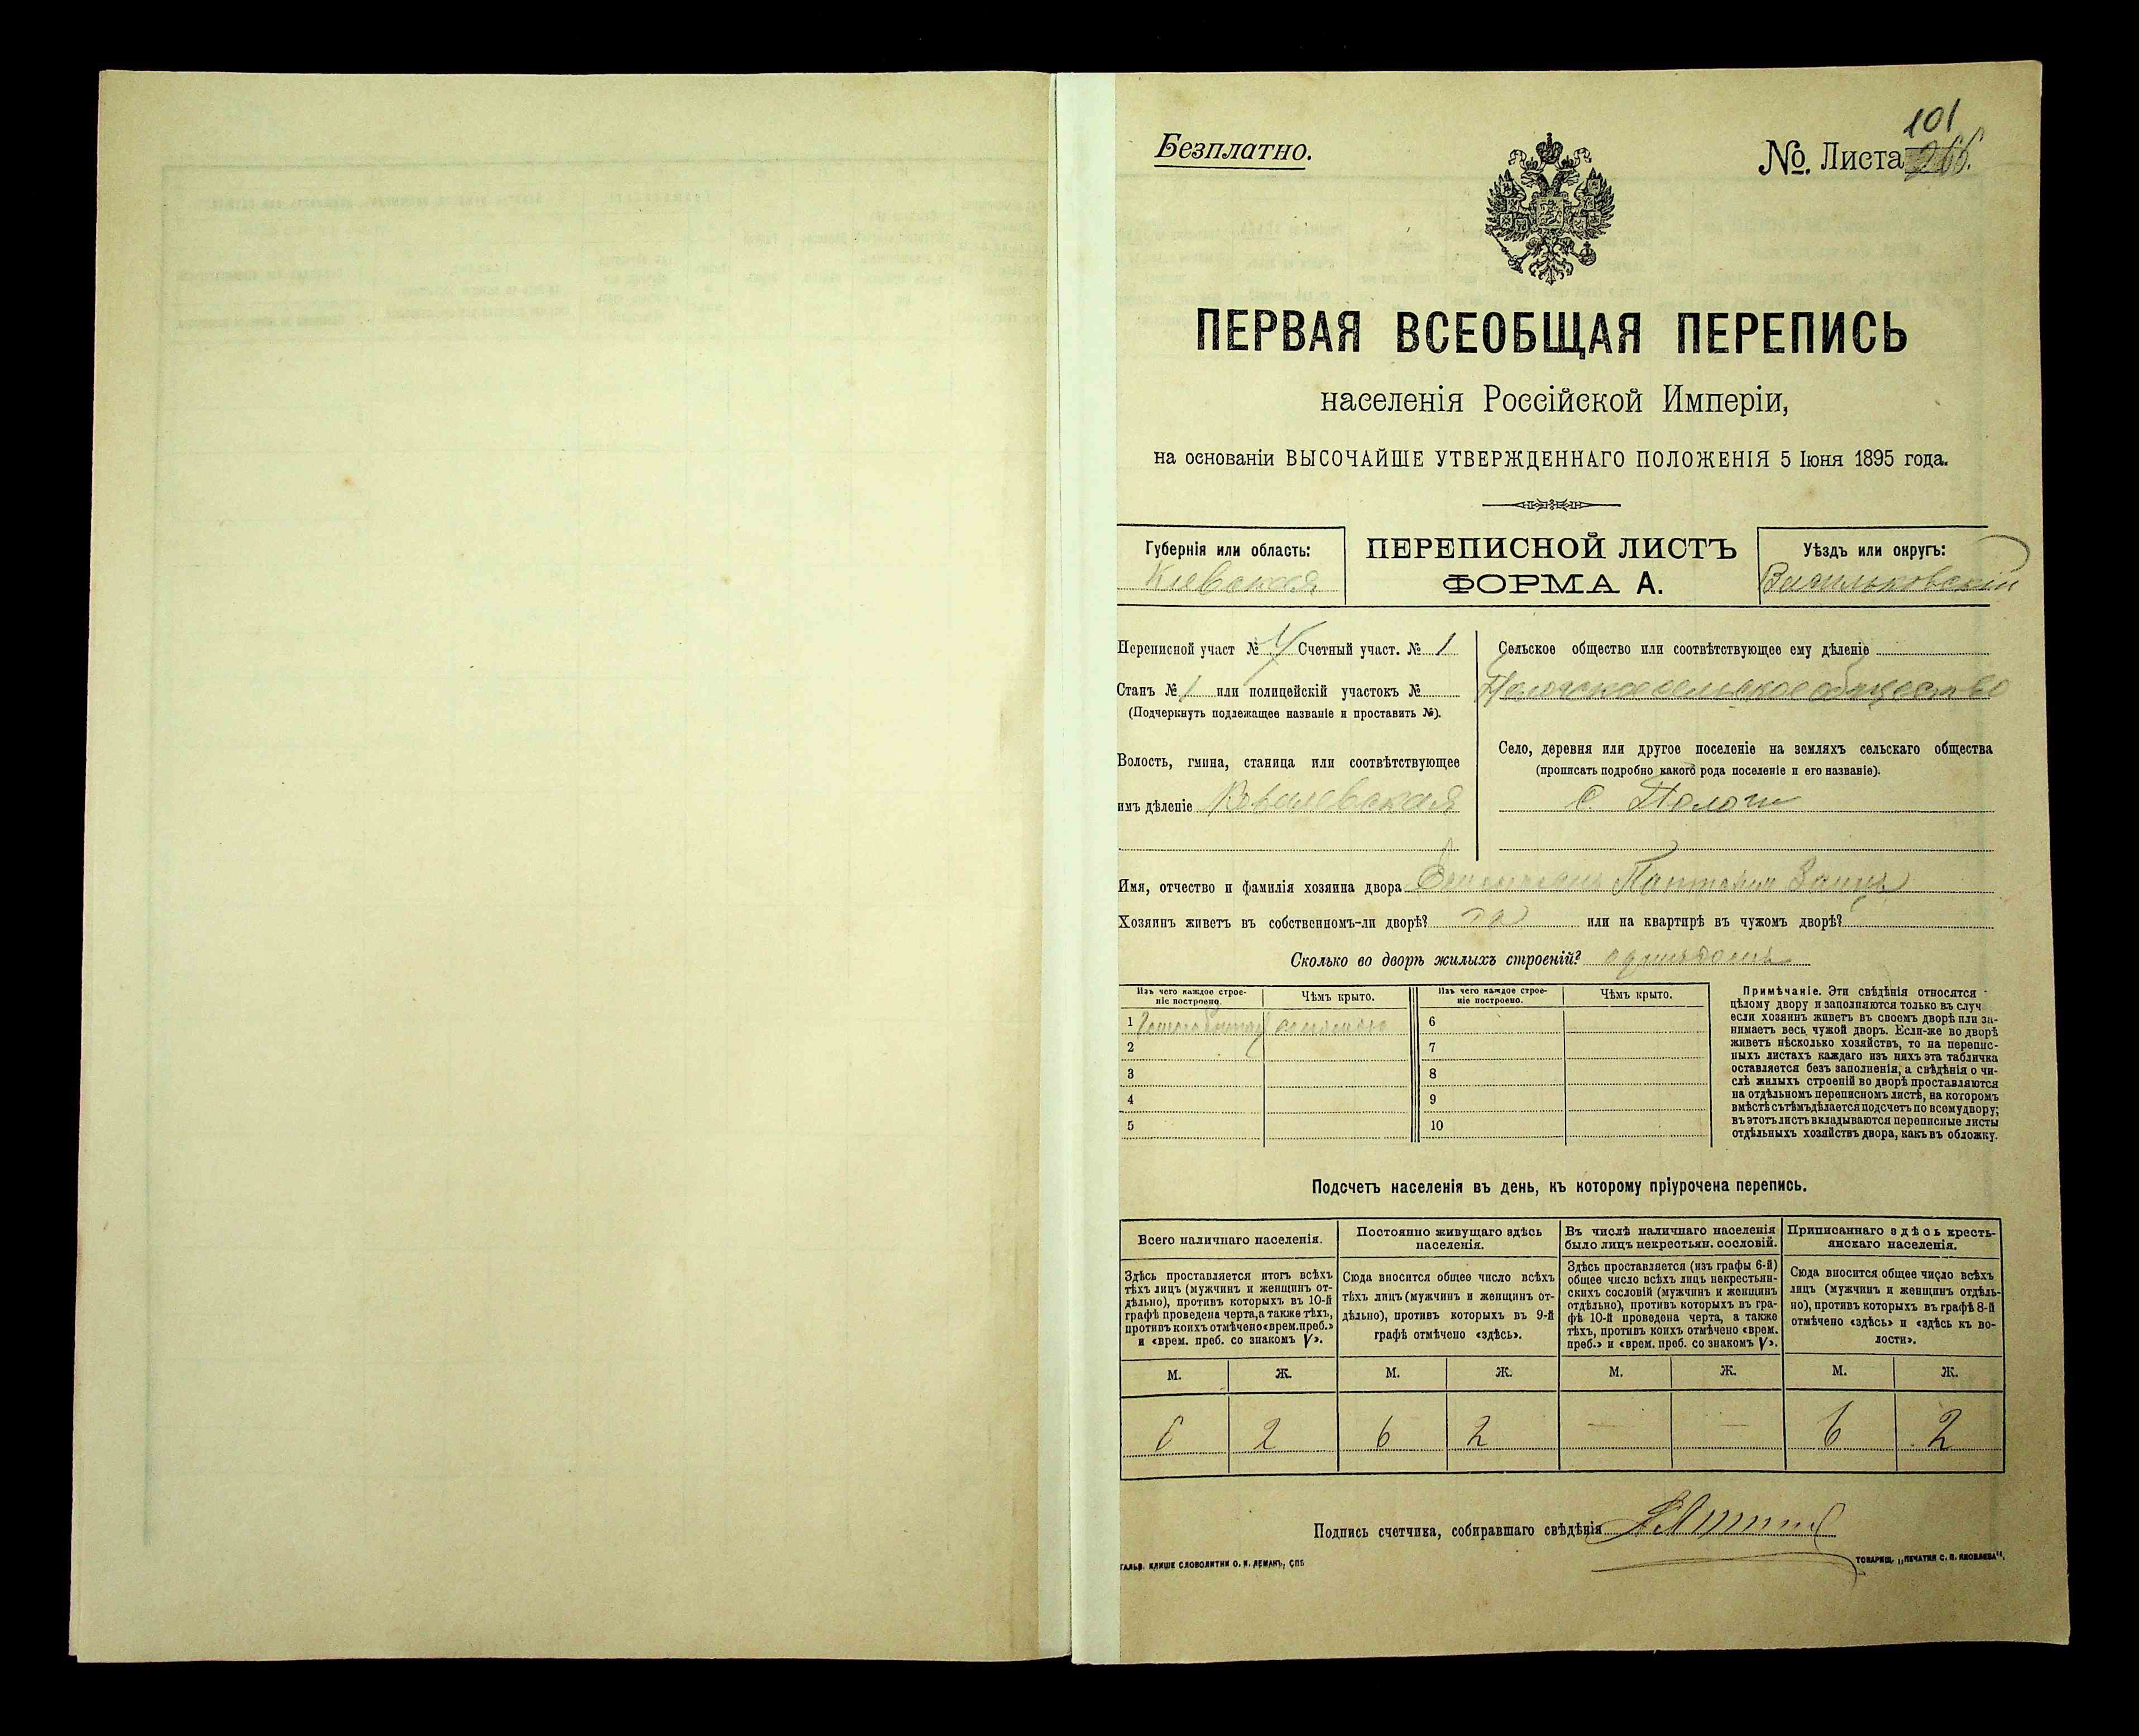 Безплатно.
101
№. Листа 266.
ПЕРВАЯ ВСЕОБЩАЯ ПЕРЕПИСЬ
населенія Россійской Имперіи,
на основаніи ВЫСОЧАЙШЕ УТВЕРЖДЕННАГО ПОЛОЖЕНІЯ 5 Іюня 1895 года.
Губернія или область:
Кіевская
ПЕРЕПИСНОЙ ЛИСТЪ
ФОРМА А.
Уѣздъ или округъ:
Васильковскій
Переписной участ № Счетный участ. № 1
Станъ № 1 или полицейскій участокъ №
(Подчеркнуть подлежащее названіе и проставить №).
Волость, гмина, станица или соотвѣтствующее
имъ дѣленіе Ковалевская
Сельское общество или соотвѣтствующее ему дѣленіе
сельское общество
Село, деревня или другое поселеніе на земляхъ сельскаго общества
(прописать подробно какого рода поселеніе и его названіе).
с. Пологи
Имя, отчество и фамилія хозяина двора
Хозяинъ живетъ въ собственномъ-ли дворѣ? да или на квартирѣ въ чужомъ дворѣ?
Сколько во дворѣ жилыхъ строеній?
Изъ чего каждое строе-
ніе построено.
Чѣмъ крыто.
Изъ чего каждое строе-
ніе построено.
Чѣмъ крыто.
1 соломою 6
2 7
3 8
4 9
5 10
Примѣчаніе. Эти свѣдѣнія относятся
цѣлому двору и заполняются только въ случ
если хозяинъ живетъ въ своемъ дворѣ или за-
нимаетъ весь чужой дворъ. Если-же во дворѣ
живетъ нѣсколько хозяйствъ, то на перепис-
ныхъ листахъ каждаго изъ нихъ эта табличка
оставляется безъ заполненія, а свѣдѣнія о чи-
слѣ жилыхъ строеній во дворѣ проставляются
на отдѣльномъ переписномъ листѣ, на которомъ
вмѣстѣ съ тѣмъ дѣлается подсчетъ по всему двору;
въ этотъ листъ вкладываются переписные листы
отдѣльныхъ хозяйствъ двора, какъ въ обложку.
Подсчетъ населенія въ день, къ которому пріурочена перепись.
Всего наличнаго населенія.
Здѣсь проставляется итогъ всѣхъ
тѣхъ лицъ (мужчинъ и женщинъ от-
дѣльно), противъ которыхъ въ 10-й
графѣ проведена черта, а также тѣхъ,
противъ коихъ отмѣчено «врем. преб.»
и «врем. преб. со знакомъ V».
Постоянно живущаго здѣсь
населенія.
Сюда вносится общее число всѣхъ
тѣхъ лицъ (мужчинъ и женщинъ от-
дѣльно), противъ которыхъ въ 9-й
графѣ отмѣчено «здѣсь».
Въ числѣ наличнаго населенія
было лицъ некрестьян. сословій.
Здѣсь проставляется (изъ графы 6-й)
общее число всѣхъ лицъ некрестьян-
скихъ сословій (мужчинъ и женщинъ
отдѣльно), противъ которыхъ въ гра-
фѣ 10-й проведена черта, а также
тѣхъ, противъ коихъ отмѣчено «врем.
преб.» и «врем. преб. со знакомъ V».
Приписаннаго здѣсь кресть-
янскаго населенія.
Сюда вносится общее число всѣхъ
лицъ (мужчинъ и женщинъ отдѣль-
но), противъ которыхъ въ графѣ 8-й
отмѣчено «здѣсь» и «здѣсь къ во-
лости».
М. Ж. М. Ж. М. Ж. М. Ж.
6 2 6 2 — — 6 2
Подпись счетчика, собиравшаго свѣдѣнія
ГАЛЬВ. КЛИШЕ СЛОВОЛИТНИ О. И. ЛЕМАНЪ, СПБ
ТОВАРИЩ. „ПЕЧАТНЯ С. П. ЯКОВЛЕВА“.